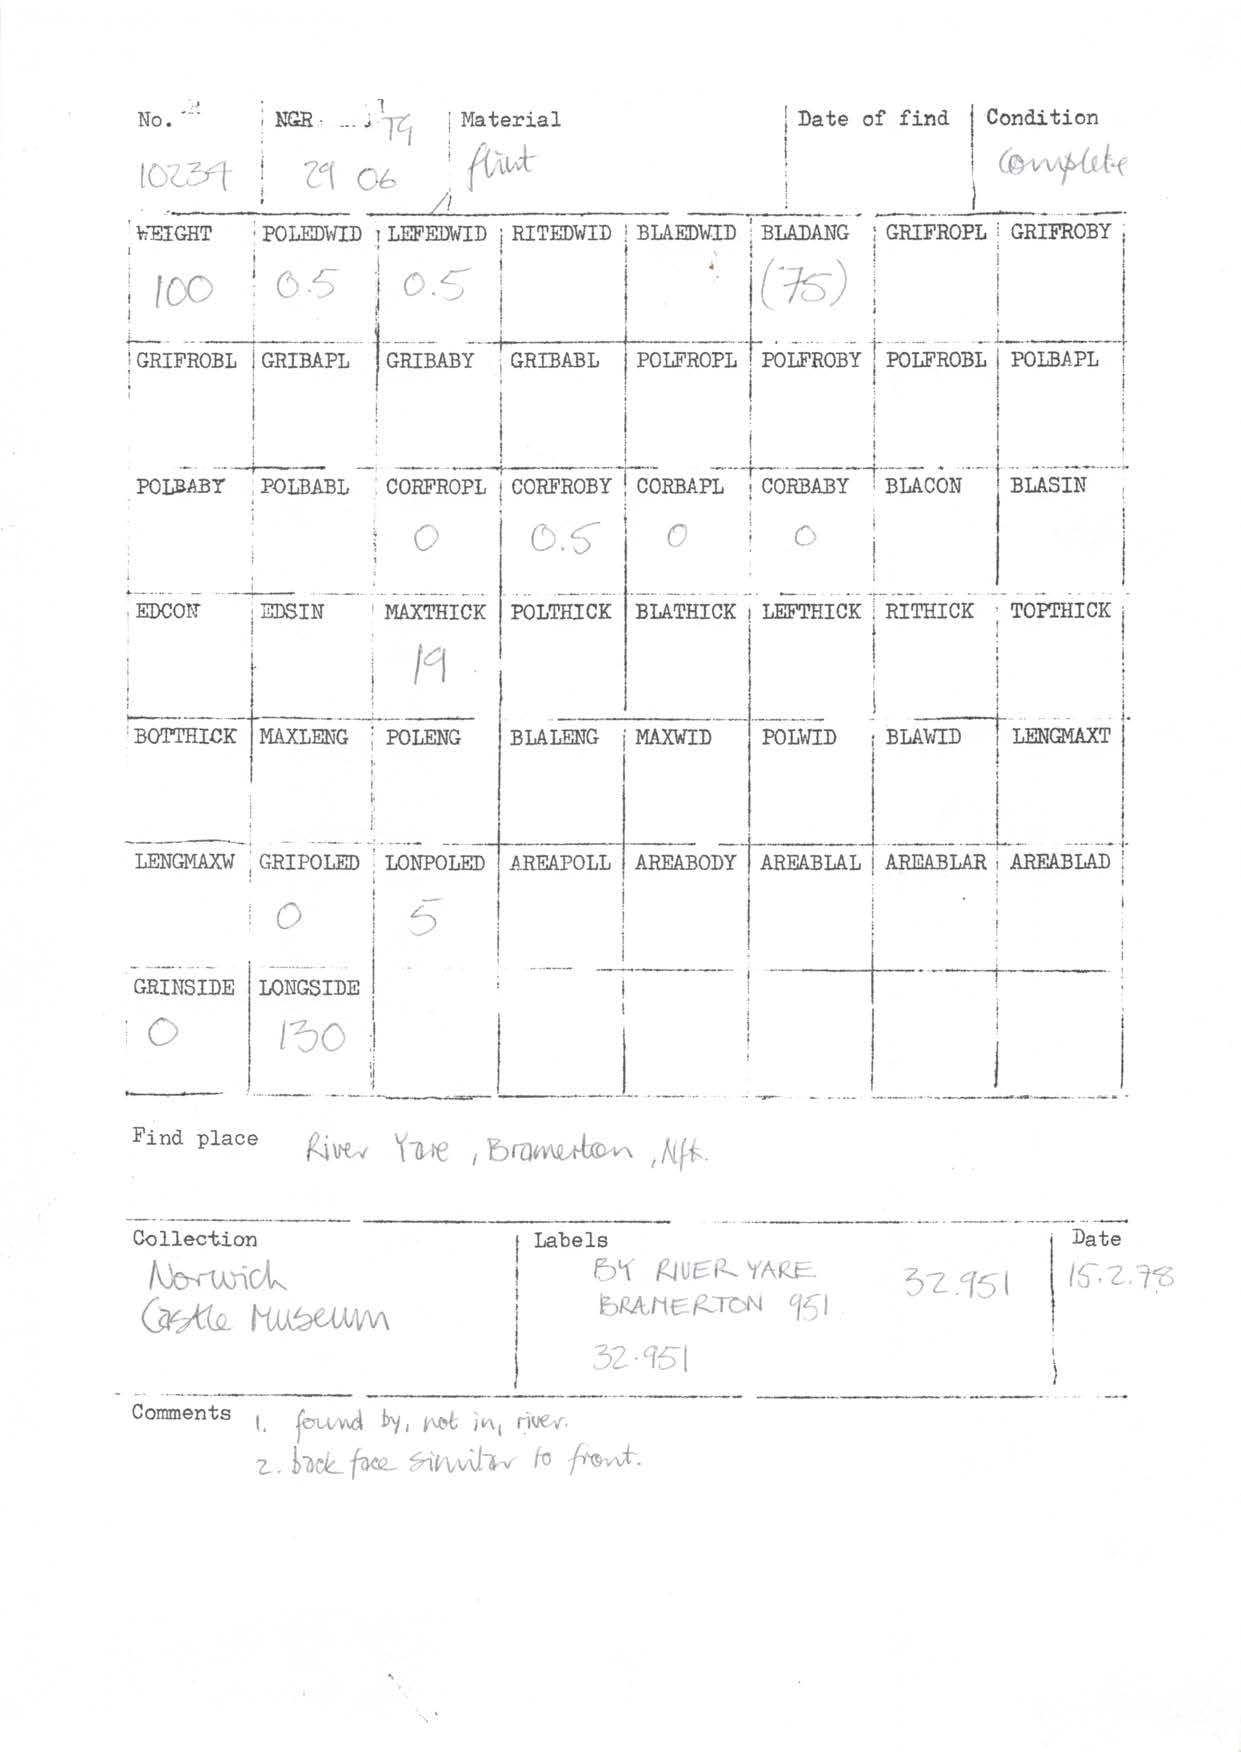 No. NGR TG Material Date of find Condition
10234 29 06 flint Complete
WEIGHT POLEDWID LEFEDWID RITEDWID BLAEDWID BLADANG GRIFROPL GRIFROBY
100 0.5 0.5 (75)
GRIFROBL GRIBAPL GRIBABY GRIBABL POLFROPL POLFROBY POLFROBL POLBAPL
POLBABY POLBABL CORFROPL CORFROBY CORBAPL CORBABY BLACON BLASIN
0 0.5 0 0
EDCON EDSIN MAXTHICK POLTHICK BLATHICK LEFTHICK RITHICK TOPTHICK
19
BOTTHICK MAXLENG POLENG BLALENG MAXWID POLWID BLAWID LENGMAXT
LENGMAXW GRIPOLED LONPOLED AREAPOLL AREABODY AREABLAL AREABLAR AREABLAD
0 5
GRINSIDE LONGSIDE
0 130
Find place River Yare, Bramerton, Nfk.
Collection Labels Date
Norwich BY RIVER YARE 32.951 15.2.78
Castle Museum BRAMERTON 951
32.951
Comments 1. found by, not in, river.
2. back face similar to front.